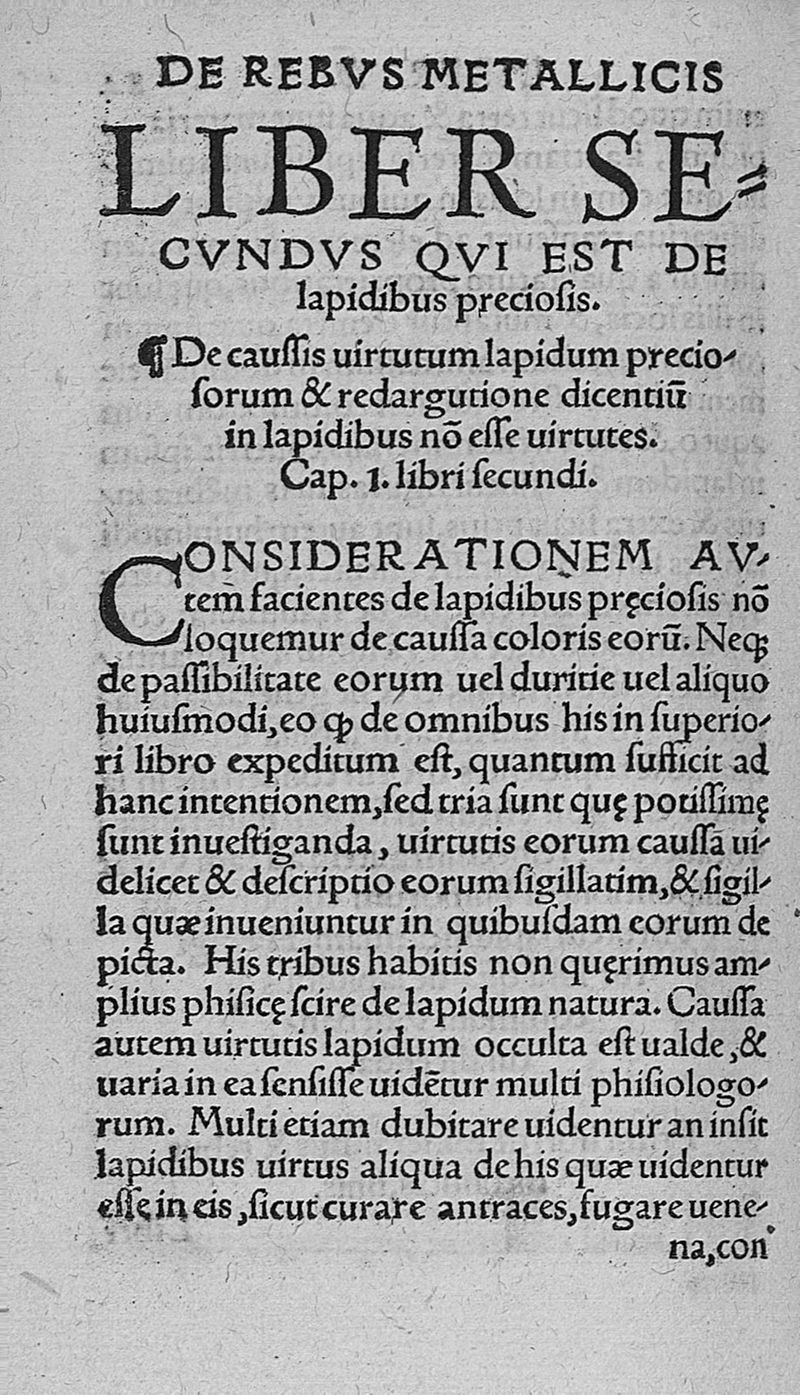 DE REBVS METALLICIS
LIBER SE⸗
CVNDVS QVI EST DE
lapidibus precioſis.
¶ De cauſſis uirtutum lapidum precio⸗
ſorum & redargutione dicentiū
in lapidibus nō eſſe uirtutes.
Cap. 1. libri ſecundi.
CONSIDERATIONEM AV⸗
tem̄ facientes de lapidibus pręcioſis nō
loquemur de cauſſa coloris eorū. Neqꝫ
de paſſibilitate eorum uel duritie uel aliquo
huiuſmodi, eo ꝙ de omnibus his in ſuperio⸗
ri libro expeditum eſt, quantum ſufficit ad
hanc intentionem, ſed tria ſunt quę potiſſimę
ſunt inueſtiganda, uirtutis eorum cauſſa ui⸗
delicet & deſcriptio eorum ſigillatim, & ſigil⸗
la quæ inueniuntur in quibuſdam eorum de
picta. His tribus habitis non quęrimus am⸗
plius phiſicę ſcire de lapidum natura. Cauſſa
autem uirtutis lapidum occulta eſt ualde, &
uaria in ea ſenſiſſe uidētur multi phiſiologo⸗
rum. Multi etiam dubitare uidentur an inſit
lapidibus uirtus aliqua de his quæ uidentur
eſſe in eis, ſicut curare antraces, fugare uene⸗
na, con